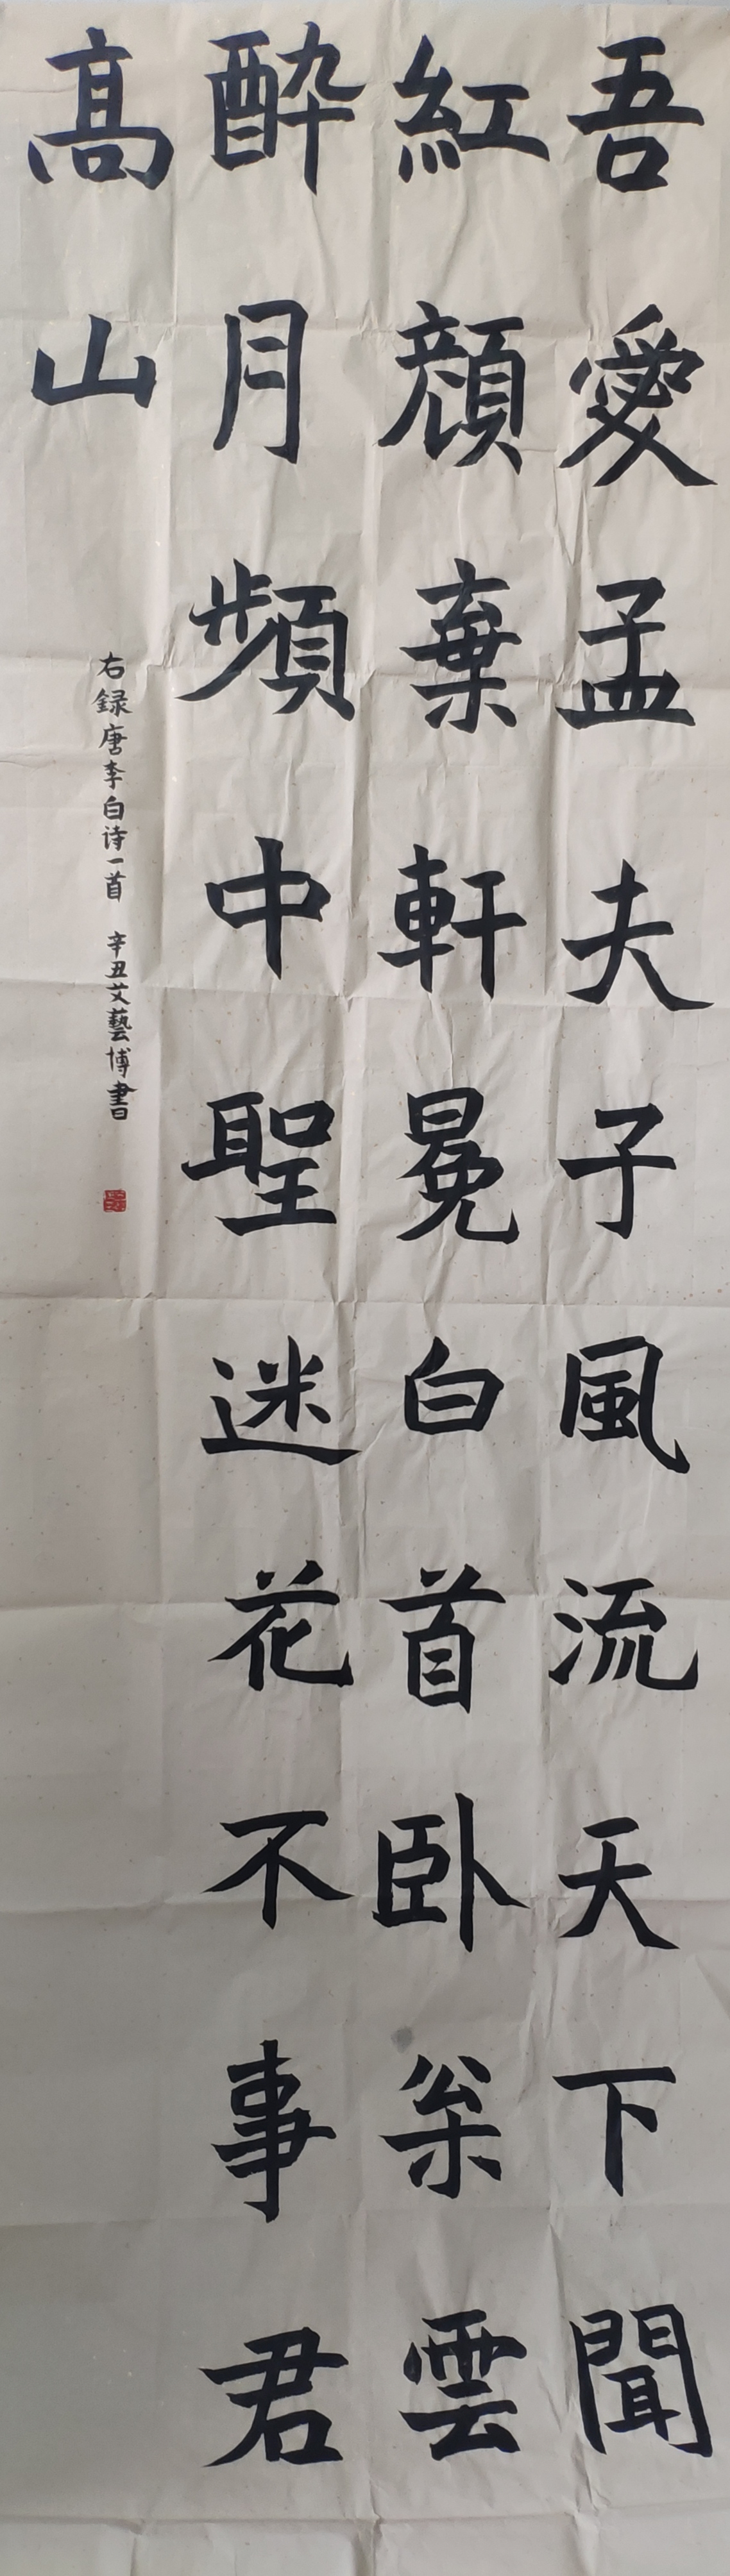 吾愛孟夫子風流天下聞
紅顔棄軒冕白首卧枀雲
醉月頻中聖迷花不事君
高山
右録唐李白诗一首 辛丑艾藝博書